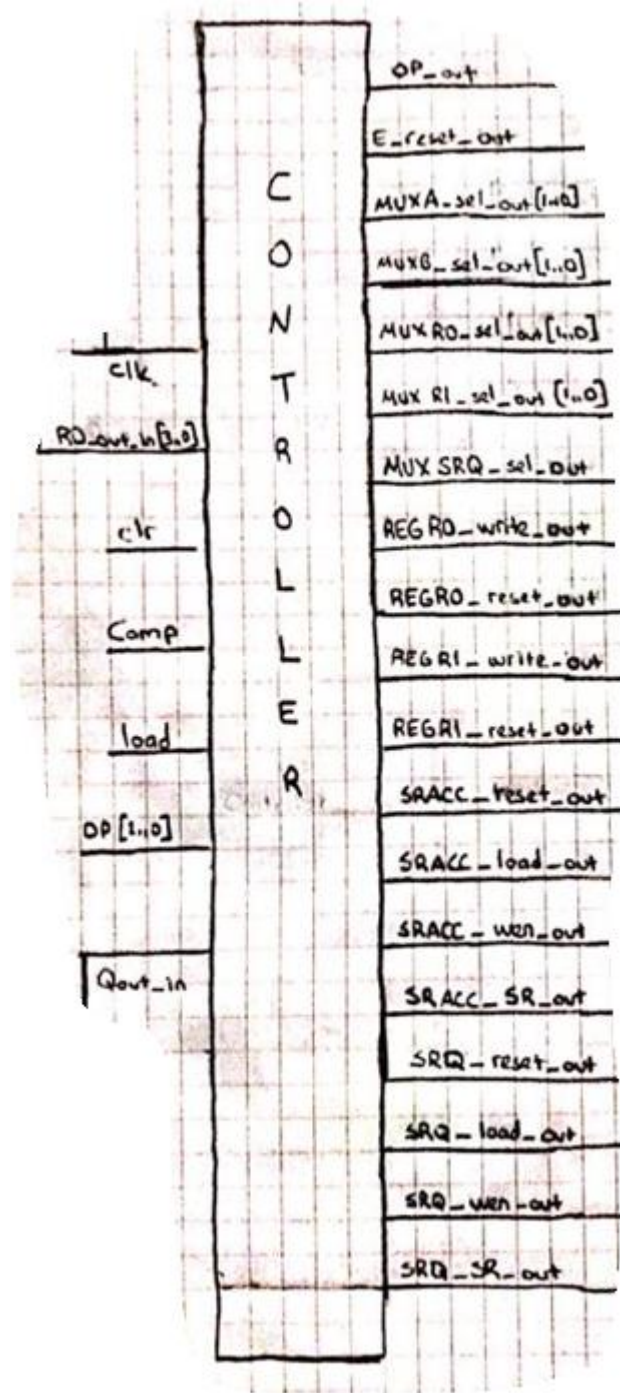 CONTROLLER
clk
RO_out_in[3..0]
clr
Comp
load
OP[2..0]
Qout_in
OP_out
E_reset_out
MUXA_sel_out[1..0]
MUXB_sel_out[1..0]
MUXRO_sel_out[1..0]
MUX R1_sel_out[1..0]
MUX SRQ_sel_out
REGRO_write_out
REGRO_reset_out
REGR1_write_out
REGR1_reset_out
SRACC_reset_out
SRACC_load_out
SRACC_wen_out
SRACC_SR_out
SRQ_reset_out
SRQ_load_out
SRQ_wen_out
SRQ_SR_out